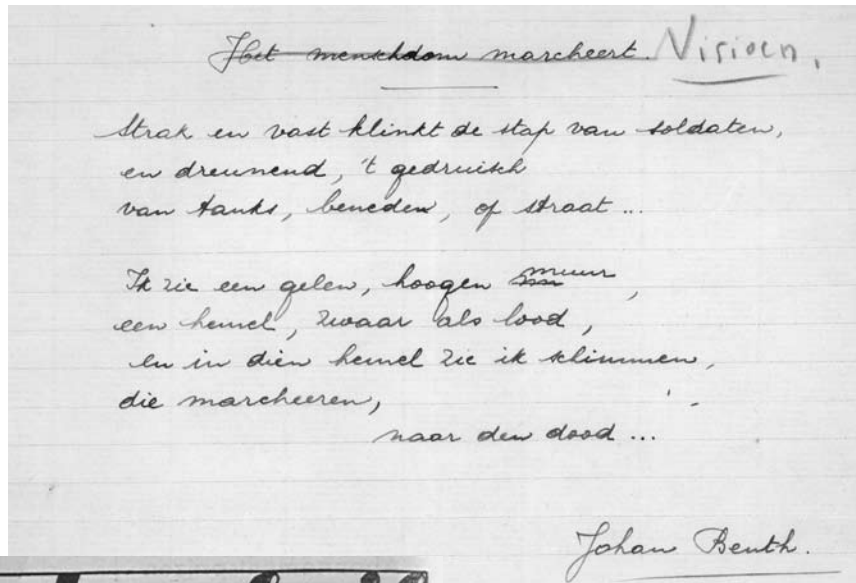 Het menschdom marcheert. Visioen.
Strak en vast klinkt de stap van soldaten,
en dreunend, 't gedruisch
van tanks, beneden, op straat...
Ik zie een gelen, hoogen muur,
een hemel, zwaar als lood,
en in dien hemel zie ik schimmen,
die marcheeren,
naar den dood...
Johan Benth.